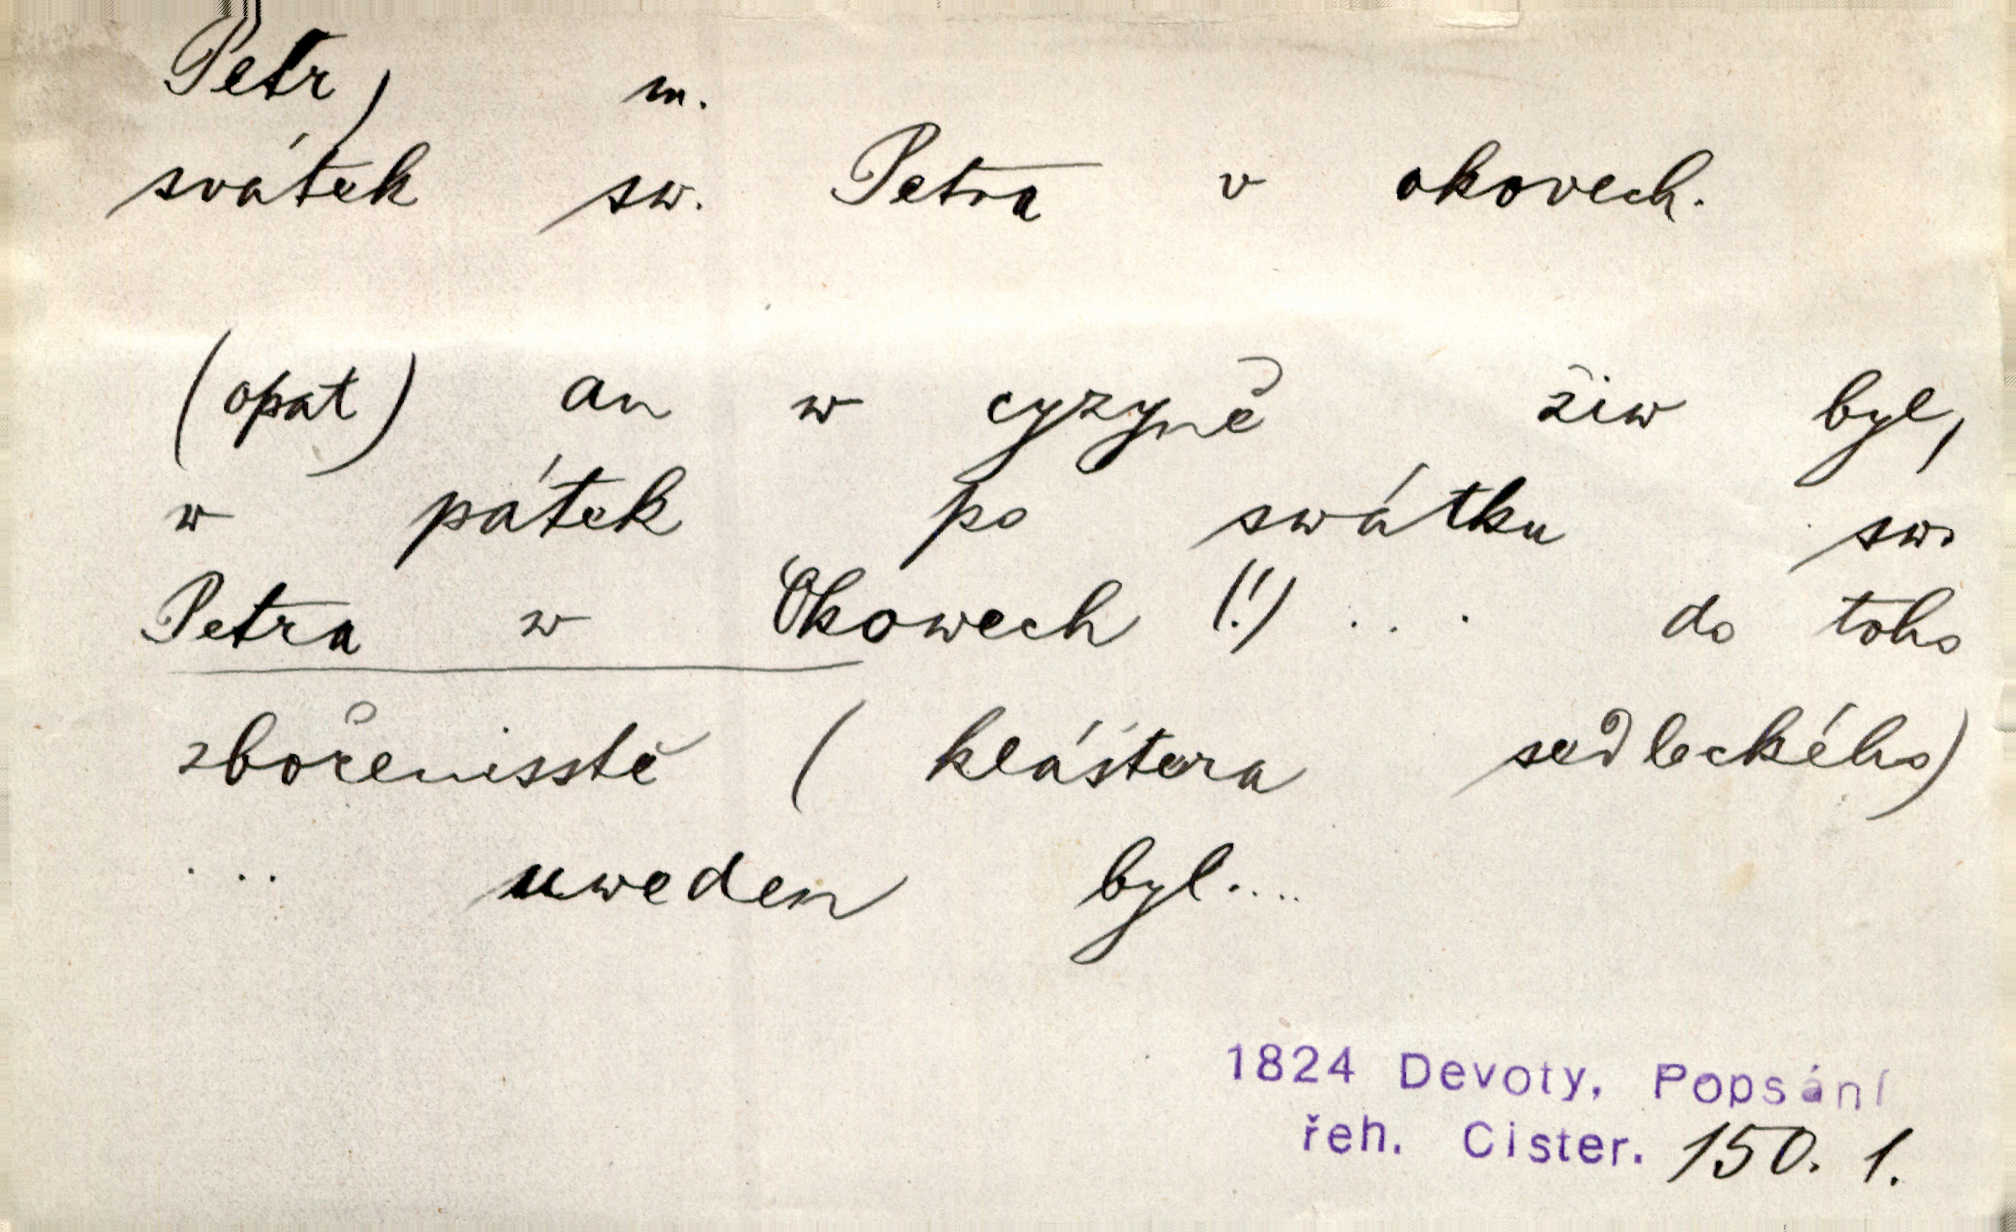 Petr, m.
svátek sw. Petra v okovech.
(opat) an w cyzyně žiw byl,
w pátek po swátku sw.
Petra w Okowech (!) ... do toho
zbořenisstě (kláštera sedleckého)
... uweden byl....
1824 Devoty, Popsání
řeh. Cister. 150. 1.